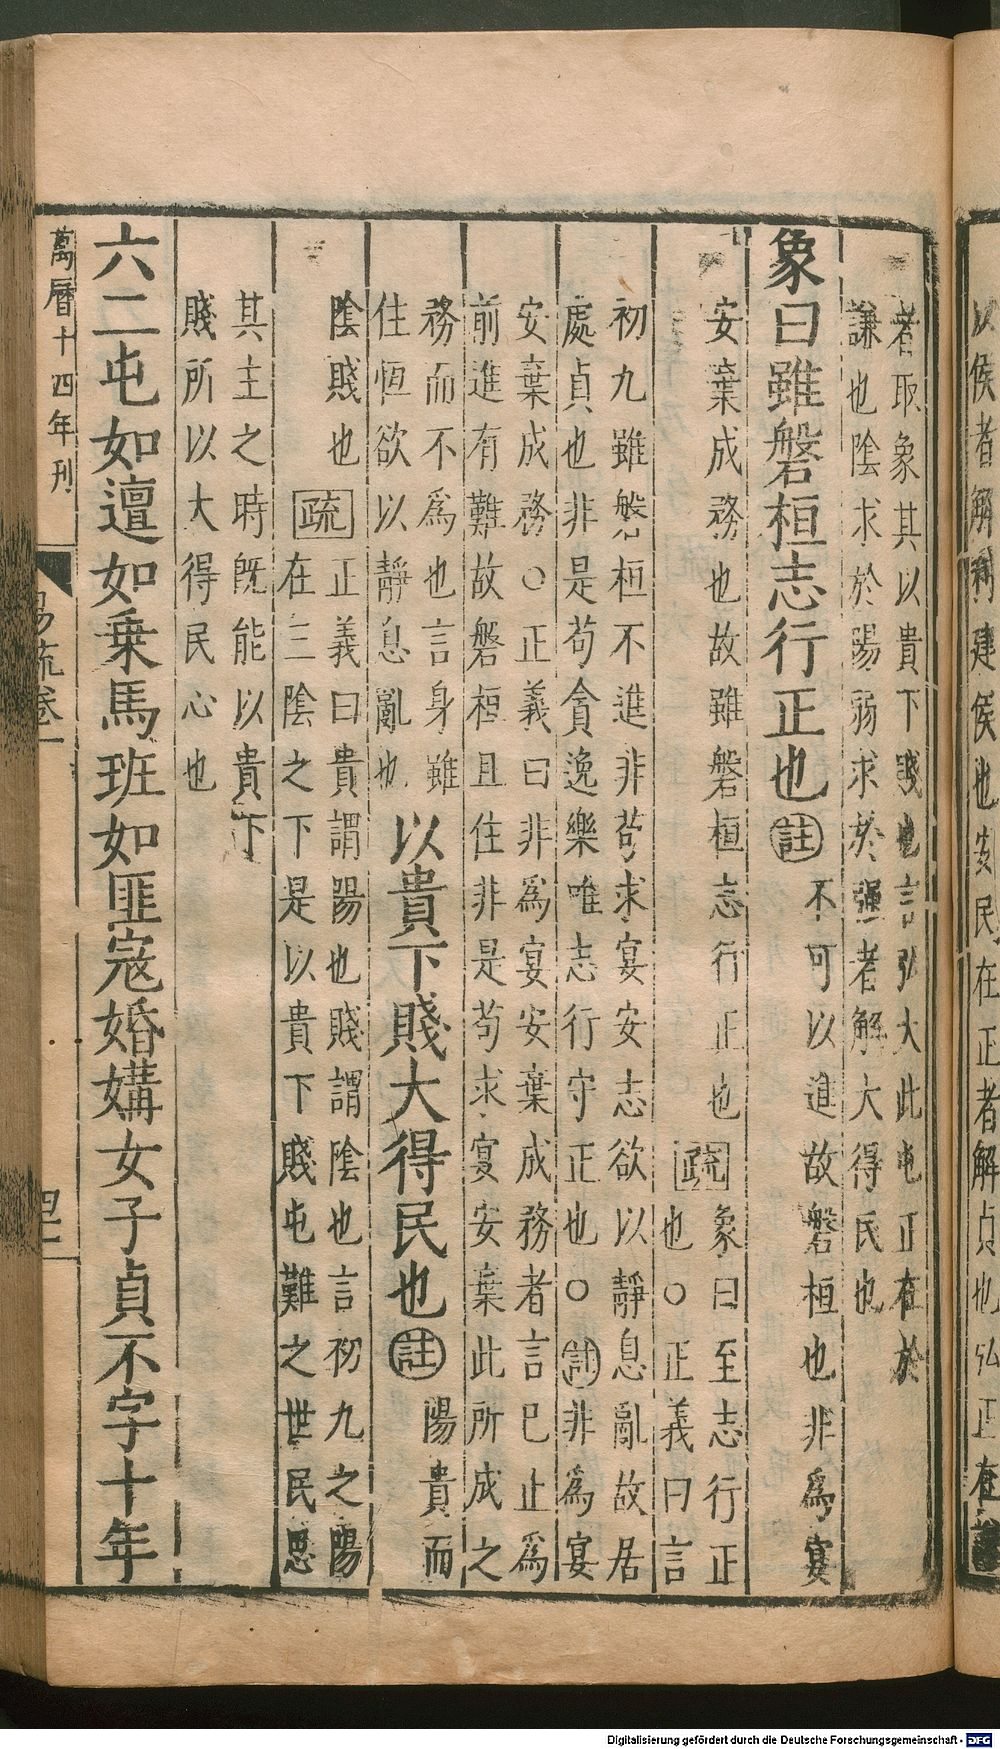 以侯者解利建侯也安民在正者解貞也弘正在
者取象其以貴下賤也言弘大此屯正在於
謙也陰求於陽弱求於强者解大得民也
象曰雖磐桓志行正也註不可以進故磐桓也非爲宴
安棄成務也故雖磐桓志行正也疏象曰至志行正
也○正義曰言
初九雖磐桓不進非苟求宴安志欲以靜息亂故居
處貞也非是苟貪逸樂唯志行守正也○註非爲宴
安棄成務○正義曰非爲宴安棄成務者言已止爲
前進有難故磐桓且住非是苟求宴安棄此所成之
務而不爲也言身雖
住恒欲以靜息亂也
以貴下賤大得民也註陽貴而
陰賤也疏正義曰貴謂陽也賤謂陰也言初九之陽
在三陰之下是以貴下賤屯難之世民思
其主之時既能以貴下
賤所以大得民心也
六二屯如邅如乗馬班如匪寇婚媾女子貞不字十年
萬曆十四年刊
易疏卷一
四十二
Digitalisierung gefördert durch die Deutsche Forschungsgemeinschaft - DFG